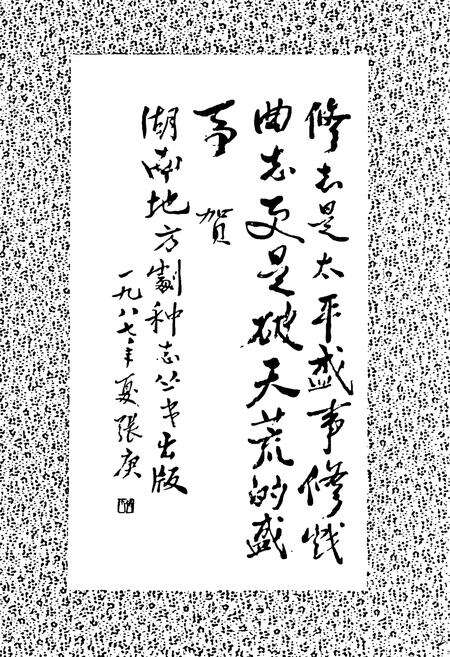 修志是太平盛事修戏
曲志更是破天荒的盛
事 贺
湖南地方剧种志丛书出版
一九八七年夏张庚